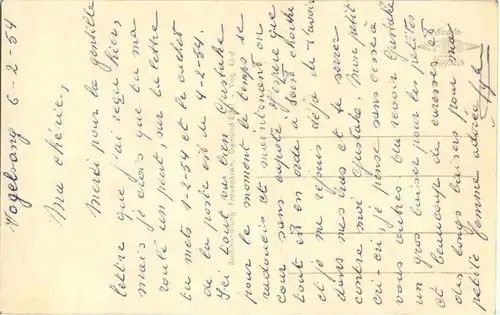 Vogelsang 6-2-54
Ma chérie,
Merci pour la gentille
lettre que j'ai reçu hier,
mais je crois que tu m'a
roulé un peut, sur la lettre
tu mets 1-2-54 et le cachet
de la poste est de 4-2-54.
Ici tout va bien Gustake
pour le moment le temps se
radoucis et maintenant on
cour sans capote. J'espère que
tout est en orde à sent
et je me rejouis déja de t'avoir
dans mes bras et te serrer
contre moi Gustake. Mon petit
cri-cri je pense sans cesse à
vous autres
un gros baiser pour les petites
et beaucoup de caresses et
des longs baisers pour ma
petite femme adorée
Buchhandlung Frauenkron, Gemünd Eifel